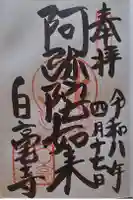 奉拝
令和八年
四月十七日
阿弥陀如来
白毫寺